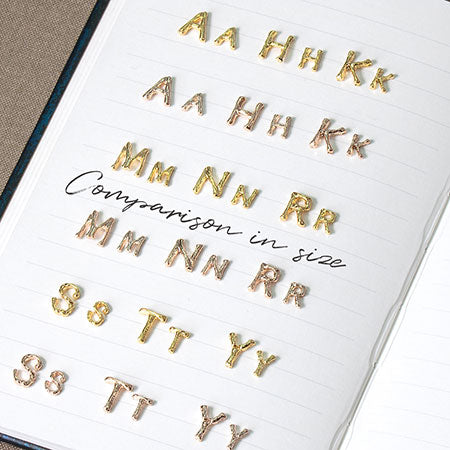 A A H H K K
A A H H K K
M M N N R R
Comparison in size
M M N N R R
S S T T Y Y
S S T T Y Y